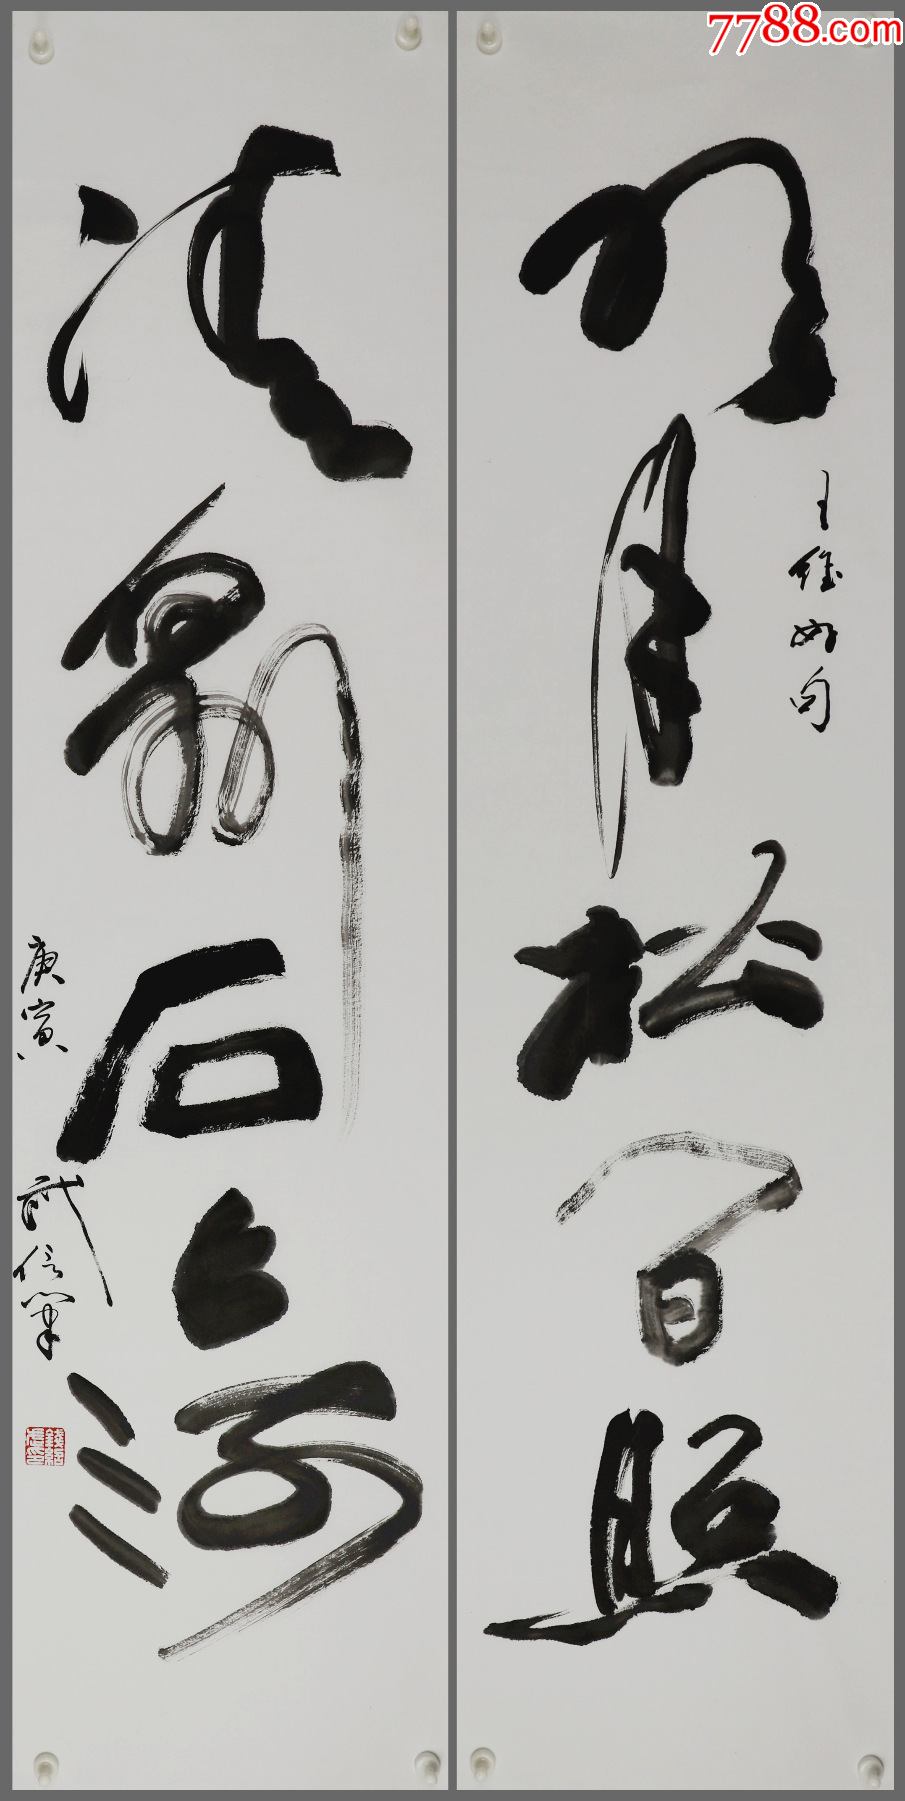 7788.com
明月松間照
王維妙句
清泉石上流
庚寅 武信筆